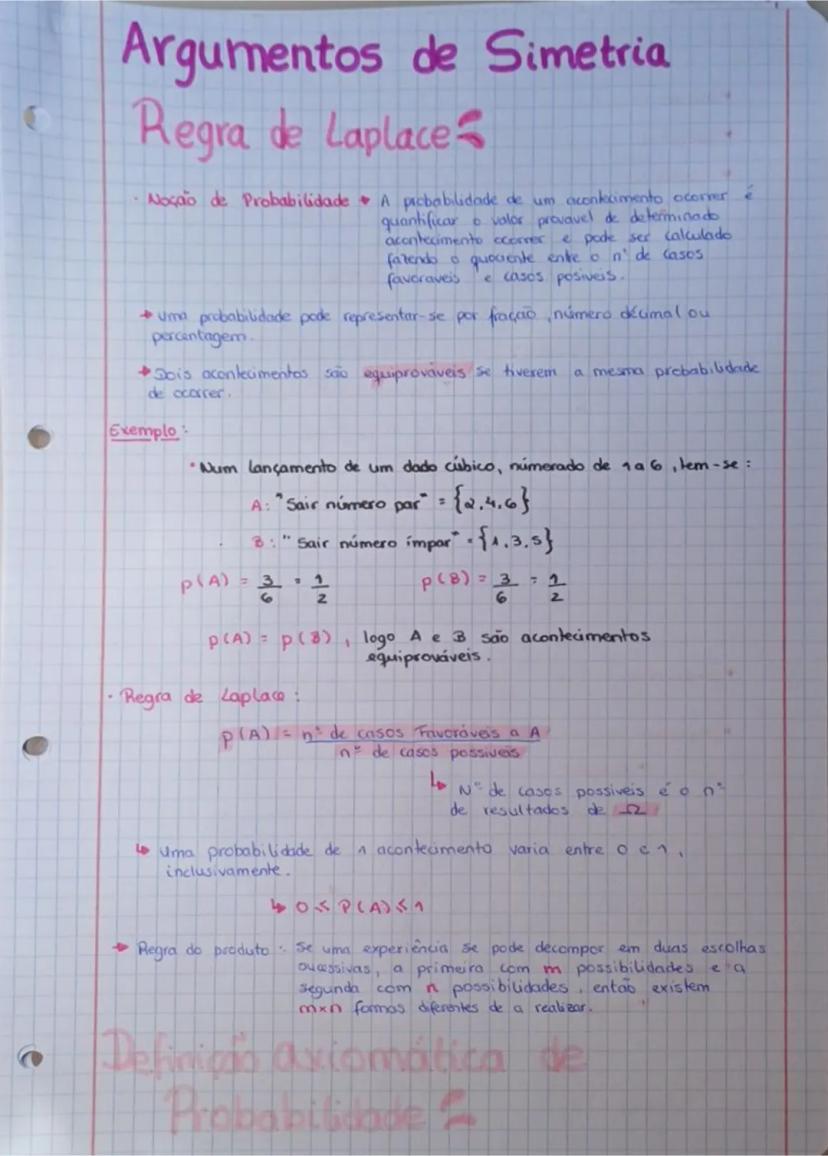 Argumentos de Simetria
Regra de Laplace
· Noção de Probabilidade • A probabilidade de um acontecimento ocorrer é
quantificar o valor provavel de determinado
acontecimento ocorrer e pode ser calculado
fazendo o quociente entre o nº de casos
favoraveis e casos posiveis.
→ uma probabilidade pode representar-se por fração, número décimal ou
percentagem.
→ Dois acontecimentos são equiprováveis se tiverem a mesma probabilidade
de ocorrer.
Exemplo:
• Num lançamento de um dado cúbico, númerado de 1 a 6, tem-se:
A: "Sair número par" = {2,4,6}
B: "Sair número ímpar" = {1,3,5}
p(A) = 3/6 = 1/2 p(B) = 3/6 = 1/2
p(A) = p(B), logo A e B são acontecimentos
equiprováveis.
· Regra de Laplace:
p(A) = nº de casos Favoráveis a A
nº de casos possiveis
↳ Nº de casos possiveis é o nº
de resultados de Ω
↳ uma probabilidade de 1 acontecimento varia entre 0 e 1,
inclusivamente.
↳ 0 ≤ P(A) ≤ 1
→ Regra do produto: Se uma experiência se pode decompor em duas escolhas
sucessivas, a primeira com m possibilidades e a
segunda com n possibilidades, então existem
m×n formas diferentes de a realizar.
Definição axiomática de
Probabilidade